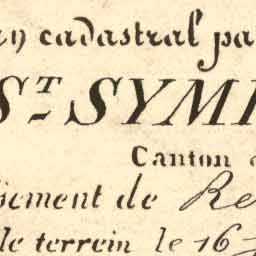 an cadastral pa
ST SYMP
Canton d
sement de Re
le terrein le 16